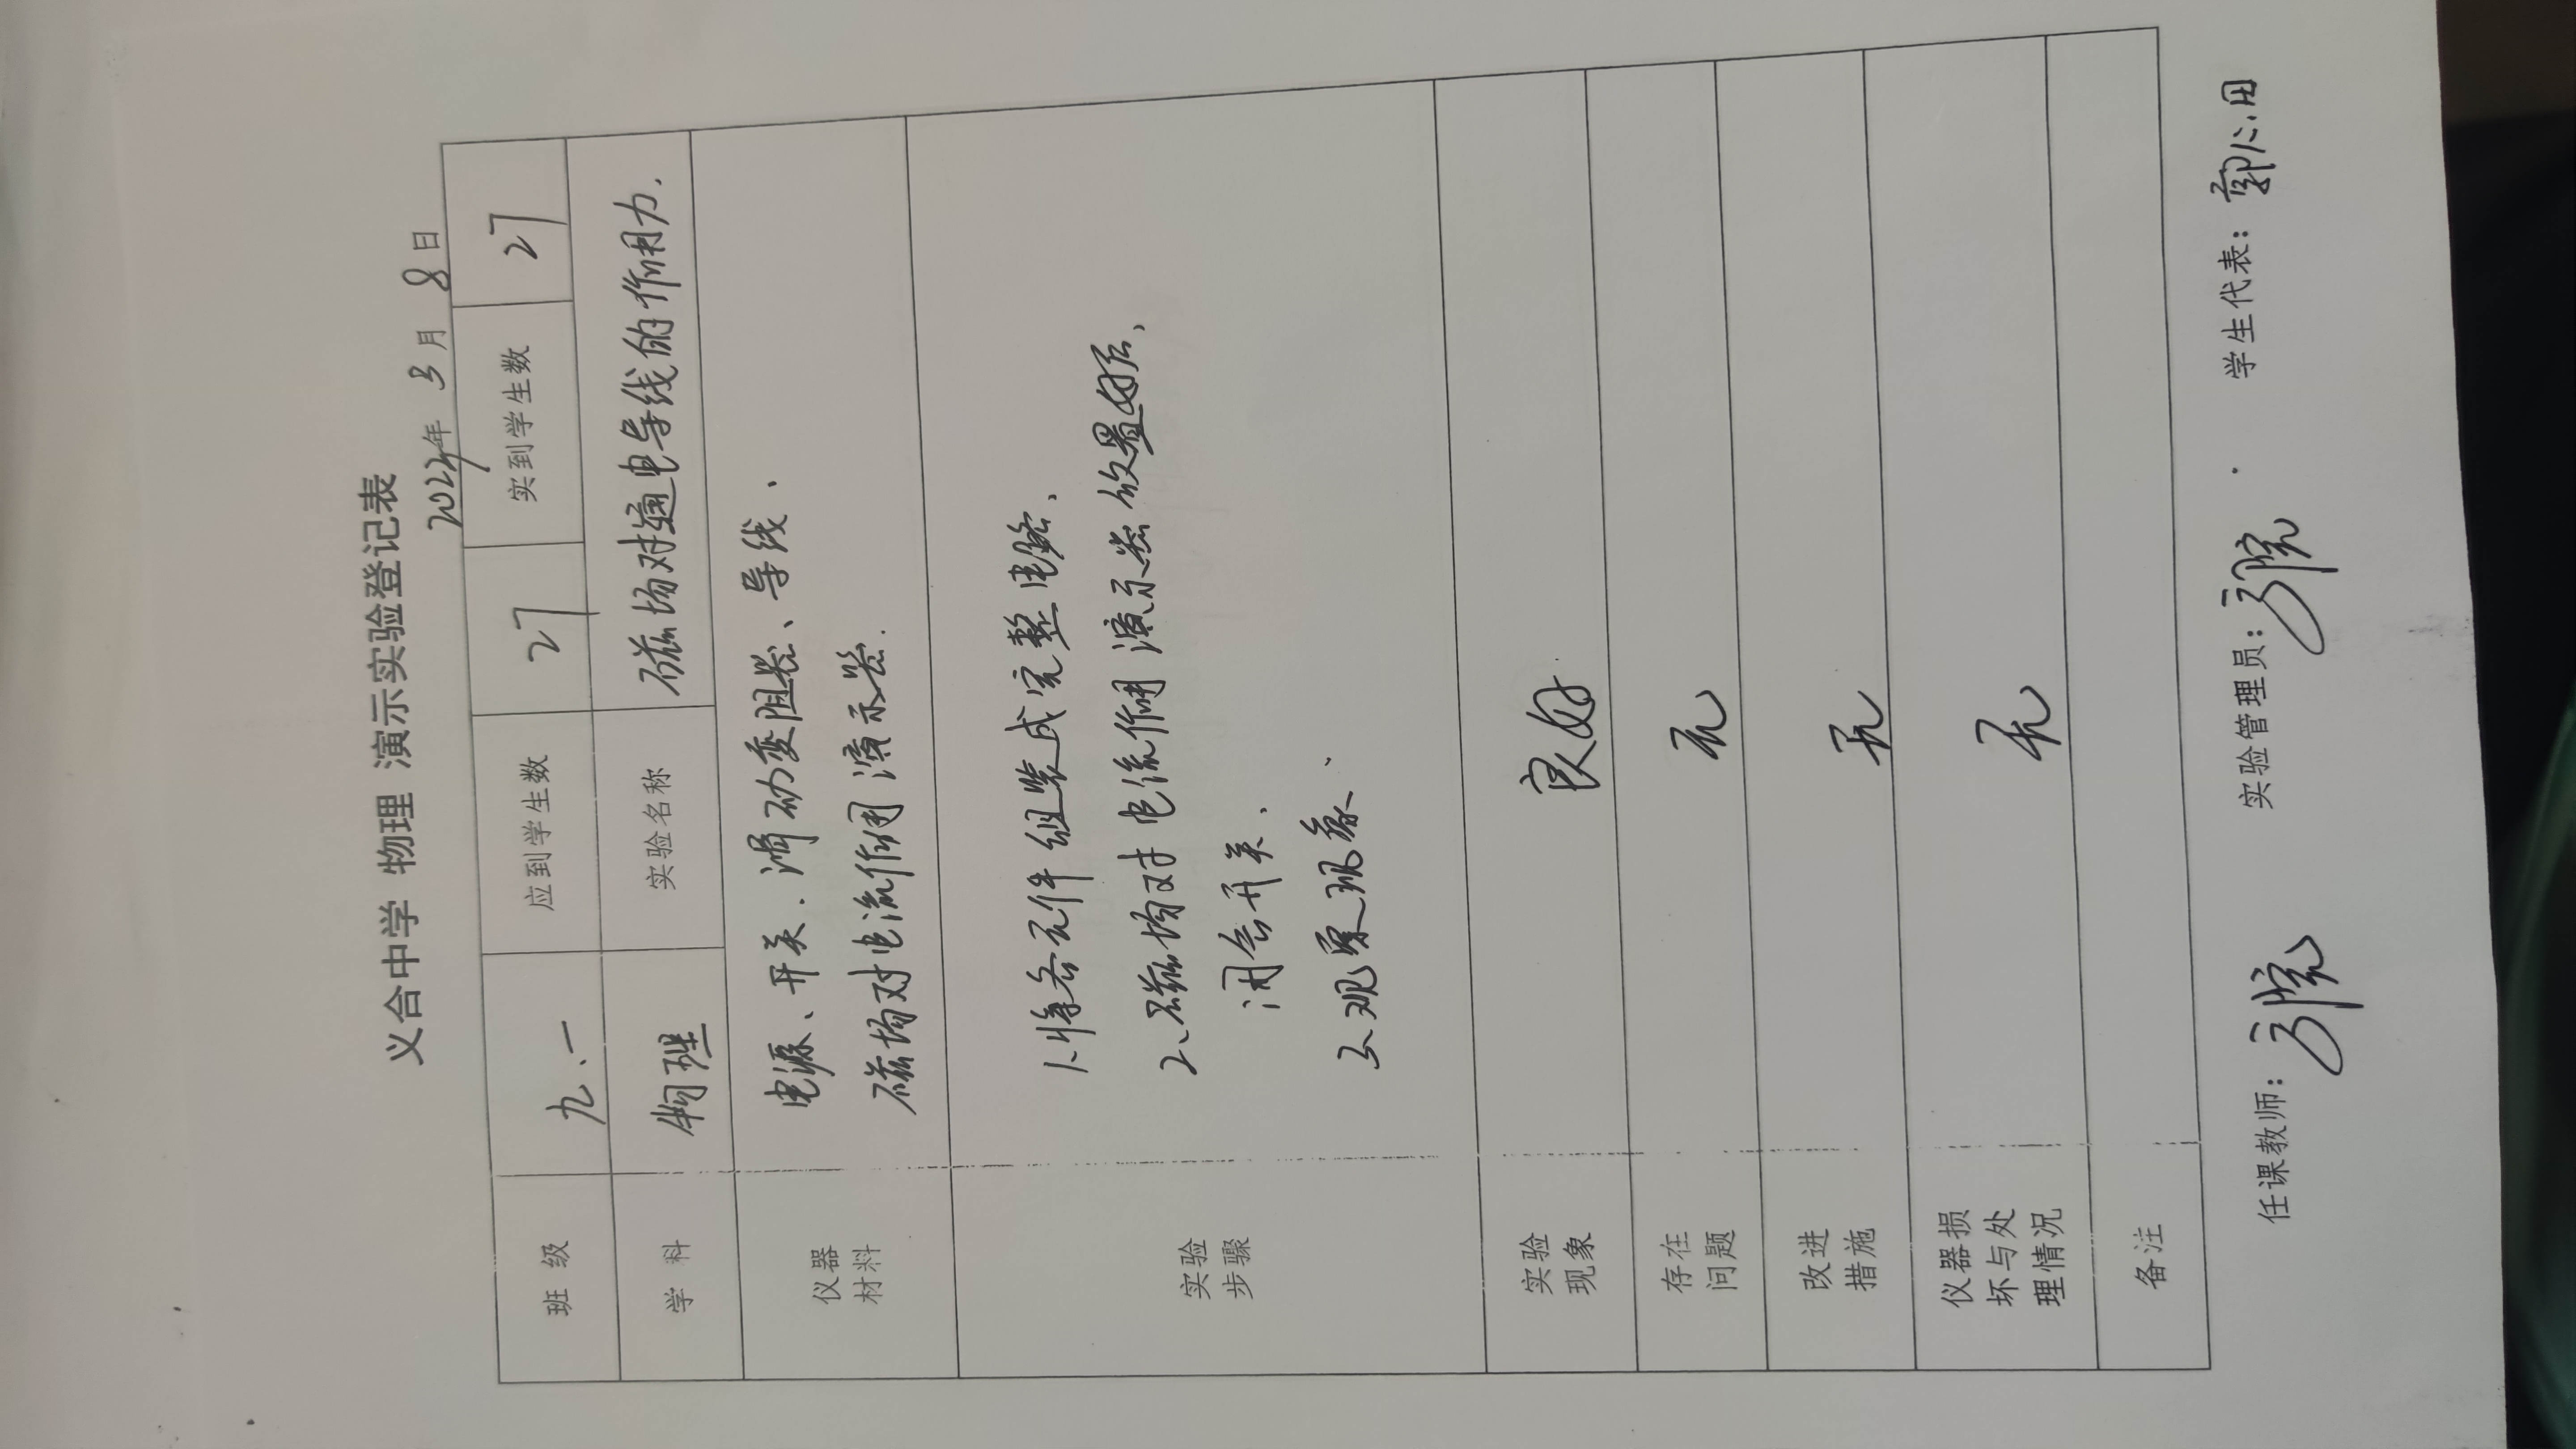 义合中学 物理 演示实验登记表
2022年 3月 8日
班级 九.一 应到学生数 27 实到学生数 27
学科 物理 实验名称 磁场对通电导线的作用力.
仪器
材料
电源、开关.滑动变阻器、导线、
磁场对电流作用演示器.
实验
步骤
1、将各元件组装成完整电路、
2、磁场对电流作用演示器放置好后、
闭合开关、
3、观察现象、
实验
现象
良好.
存在
问题
无
改进
措施
无
仪器损
坏与处
理情况
无
备注
任课教师: 实验管理员: 学生代表: